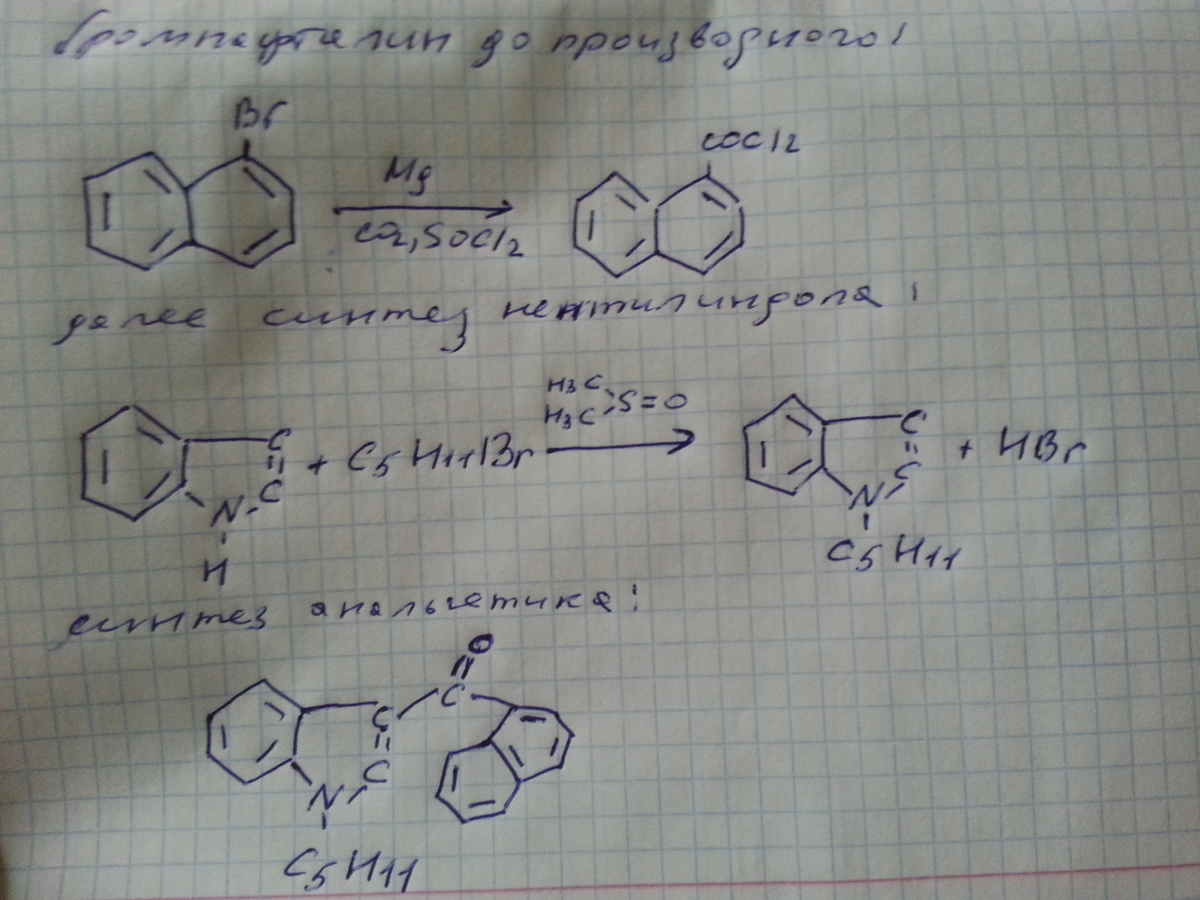 бромнафталин до производного:
Br COCl2
Mg
CO2, SOCl2
далее синтез пентилиндола:
H3C
H3C S=O
C C
C + C5H11Br C + HBr
N N
H C5H11
синтез анальгетика:
O
C
C
C
N
C5H11